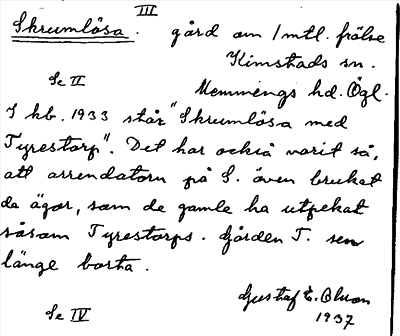 III
Skrumlösa. gård om 1 mtl. frälse
Kimstads sn.
Se II Memmings hd. Ögl.
I kb. 1933 står "Skrumlösa med
Tyrestorp". Det har också varit så,
att arrendatorn på S. även brukat
de ägor, som de gamle ha utpekat
såsom Tyrestorps. Gården T. sen
länge borta.
Gustaf E. Olsson
1937
Se IV